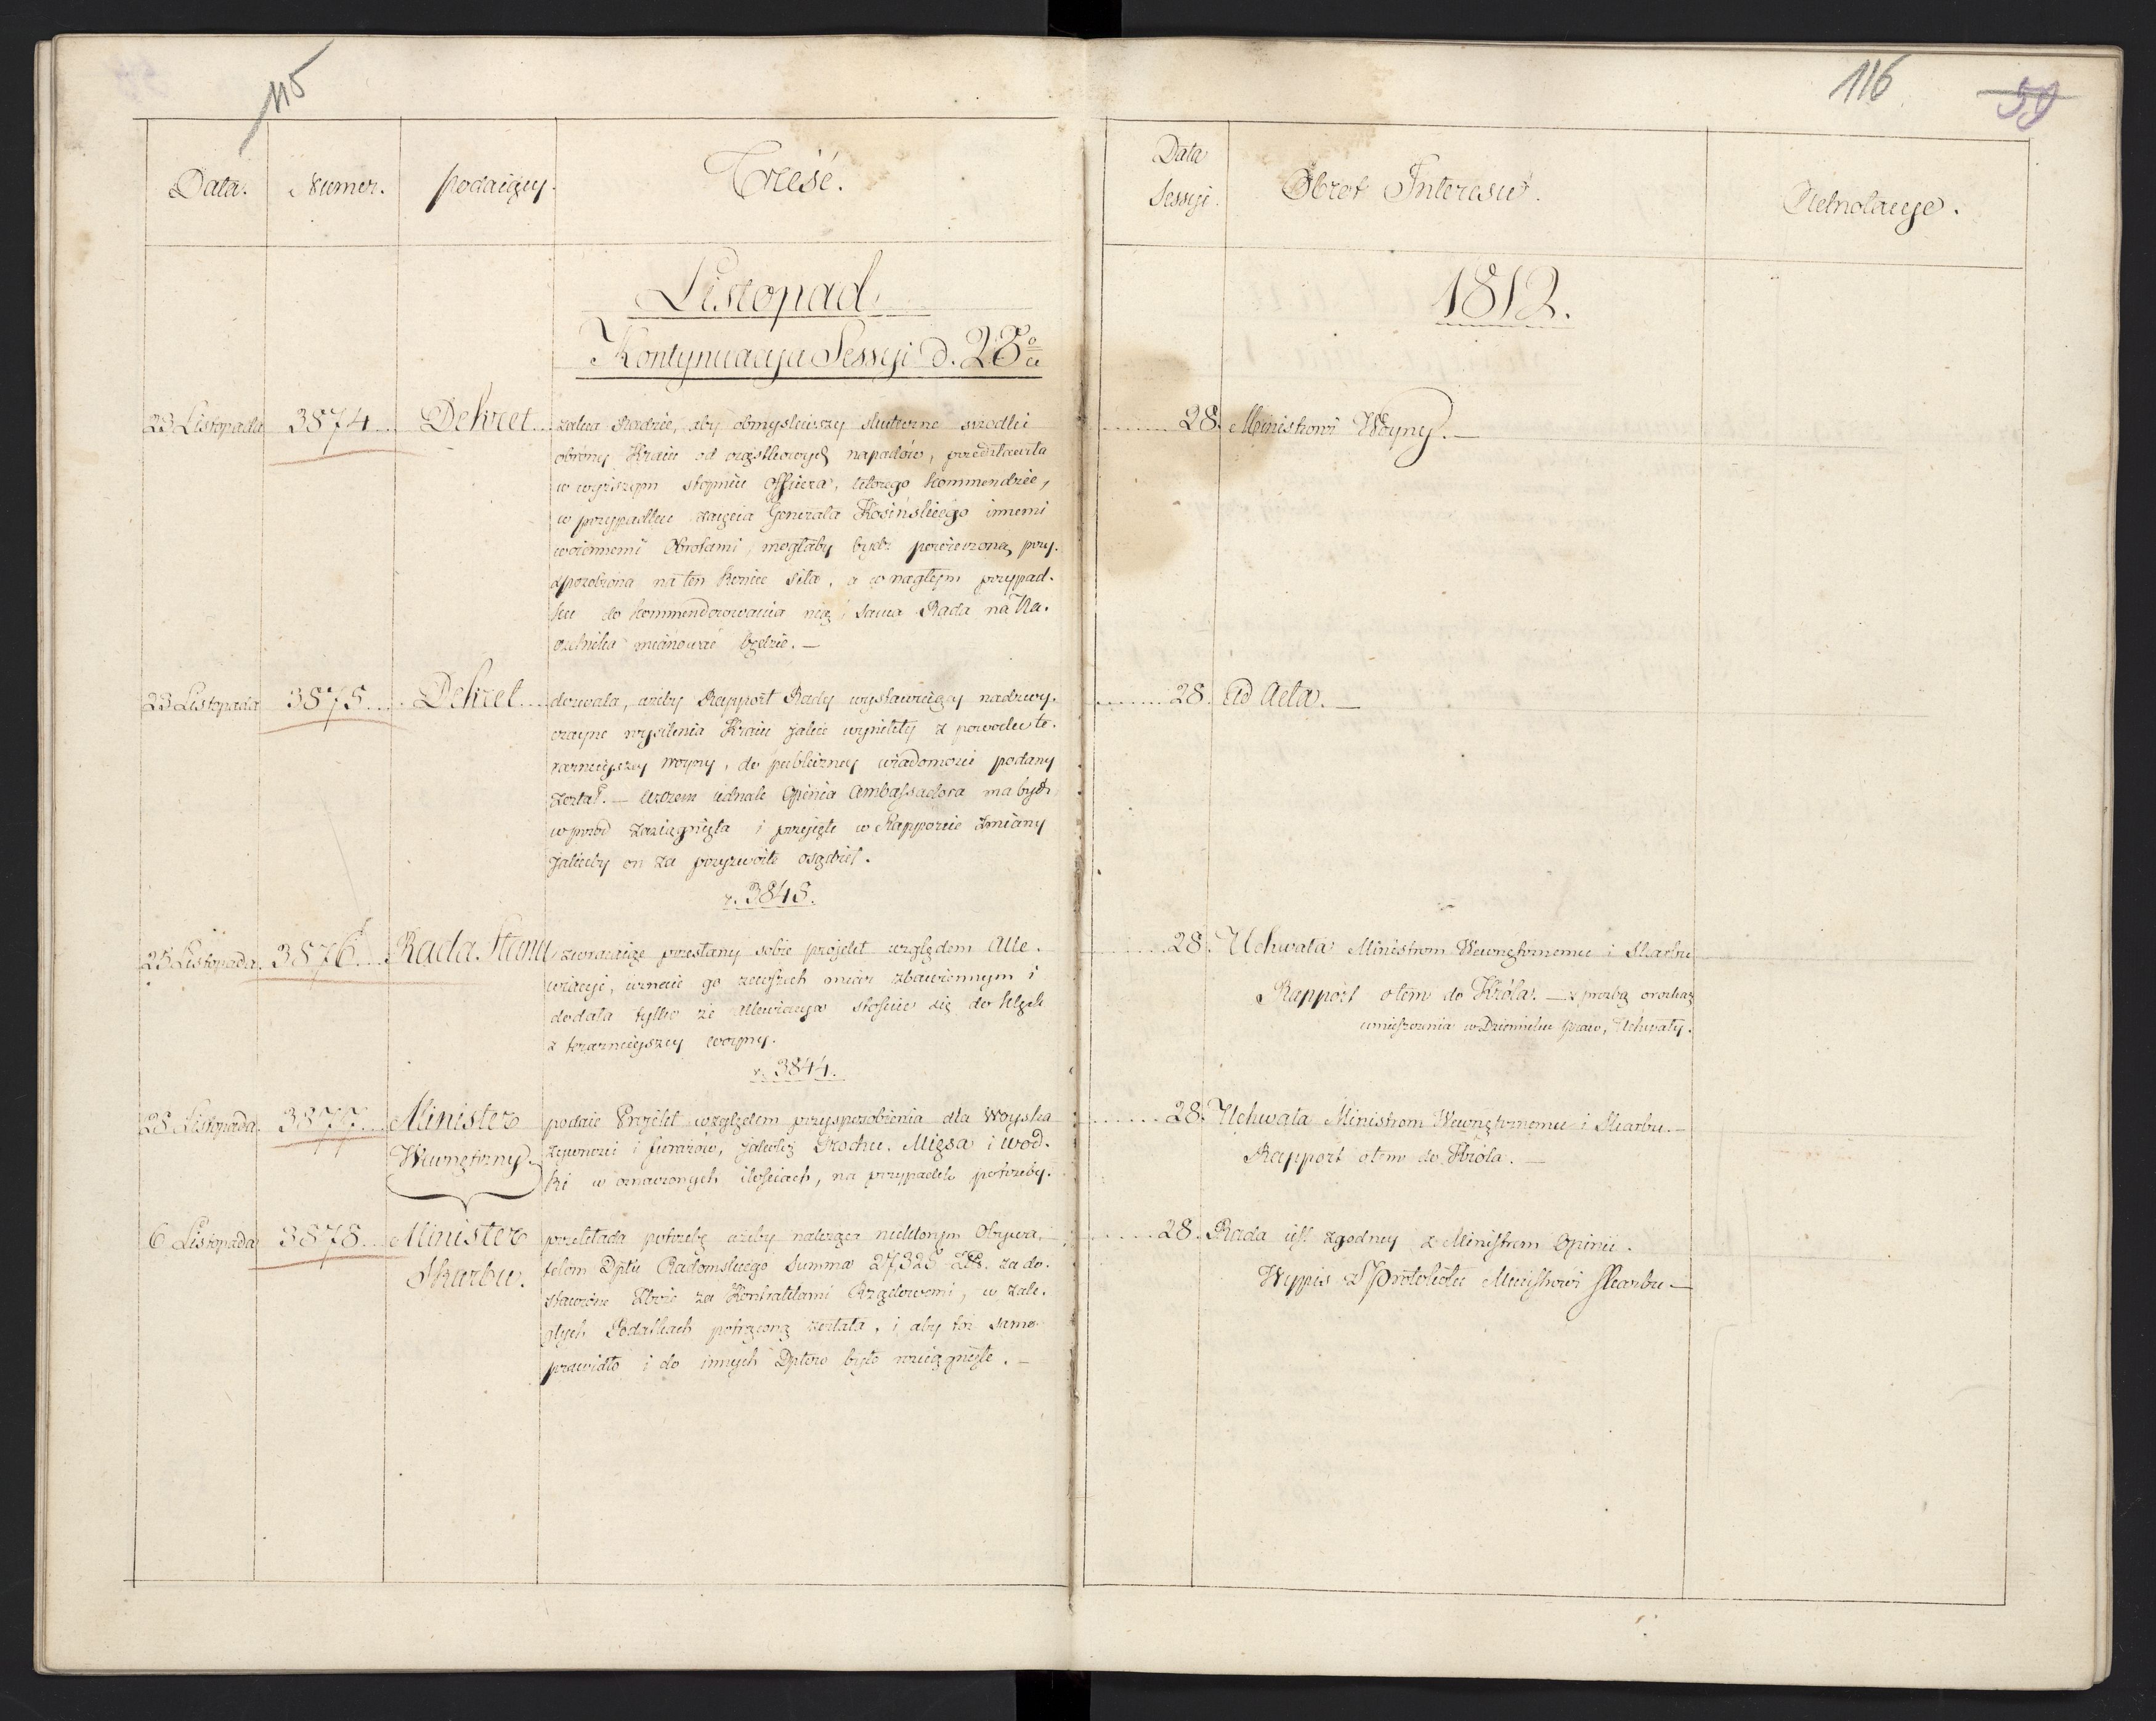 115
Data.
Numer.
podaiący.
Treść.
Listopad
Kontynuacya Sessyi d. 28º
23 Listopada 3874 Dekret zaleca Radzie, aby obmyśliwszy skuteczne srzodki
obrony Kraiu od cząstkowych napadów, przedstawiła
w wyższym stopniu Officera, którego kommendzie,
w przypadku zaięcia Generała Kosińskiego innemi
woiennemi Obrotami, mogłaby bydź powierzoną, przy-
sposobiona na ten koniec siła, a w nagłym przypad-
ku do kommenderowania nią, sama Rada na Na-
czelnika mianować będzie. —
23 Listopada 3875 Dekret dozwala, ażeby Rapport Rady wystawuiący nadzwy-
czayne wysilenia Kraiu jakie wynikły z powodu te-
raznieyszey woyny, do publiczney wiadomości podany
został. — Wszem iednak Opinia Ambassadora ma bydź
wprzód zasiągnięta i przyięte w Rapporcie zmiany
jakieby on za przyzwoite osądził.
v. 3845.
25 Listopada 3876 Rada Stanu zwracaiąc przesłany sobie projekt względem Alle-
wiacyi, uznaie go zewszech miar zbawiennym i
dodała tylko że allewiacya stosuie się do klęsk
z teraznieyszey woyny.
v. 3844.
28 Listopada 3877 Minister podaie Projekt względem przysposobienia dla Woyska
Wewnętrzny żywności i furażów, jakoteż Grochu, Mięsa i wód-
ki w oznaczonych ilościach, na przypadek potrzeby.
6 Listopada 3878 Minister przekłada potrzebę ażeby należąca niektórym Obywa-
Skarbu. telom Dptu Radomskiego Summa 27,325 za do-
stawione Zboże za Kontraktami Rządowemi, w zale-
głych Podatkach potrąconą została, i aby toż samo
prawidło i do innych Dptów było rozciągnięte. —
116
59
Data
Sessyi.
Obrot Interesu.
Adnotacye.
1812.
28. Ministrowi Woyny. —
28. Ad Acta. —
28. Uchwała Ministrom Wewnętrznemu i Skarbu
Rapport o tém do Króla. — z prozbą o rozkaz
umieszczenia w Dzienniku Praw, Uchwały.
28. Uchwała Ministrom Wewnętrznemu i Skarbu. —
Rapport o tem do Króla. —
28. Rada iest zgodney z Ministrem Opinii.
Wyppis z Protokołu Ministrowi Skarbu —